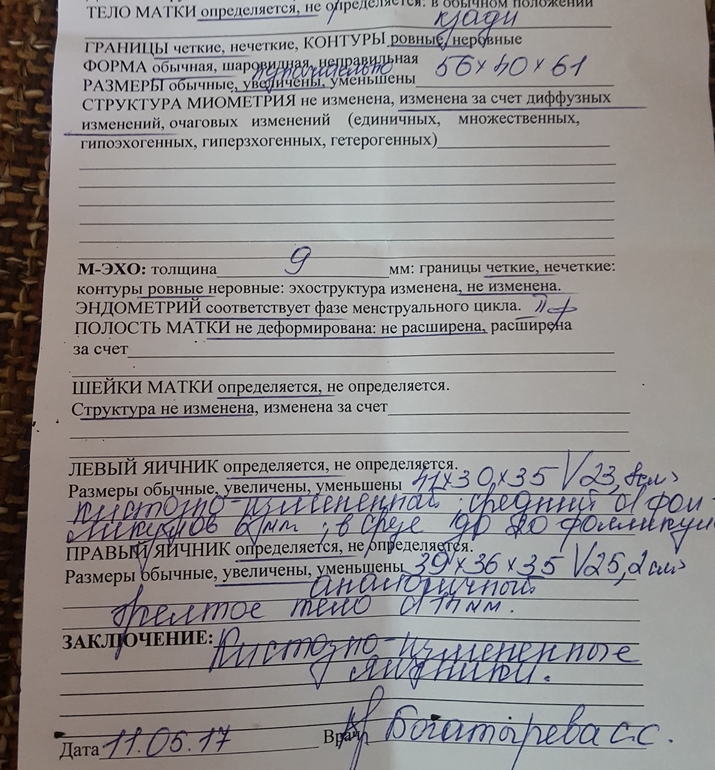 ТЕЛО МАТКИ определяется, не определяется: в обычном положении
кзади
ГРАНИЦЫ четкие, нечеткие, КОНТУРЫ ровные, неровные
ФОРМА обычная, шаровидная, неправильная
РАЗМЕРЫ обычные, увеличены, уменьшены 56х40х61
СТРУКТУРА МИОМЕТРИЯ не изменена, изменена за счет диффузных
изменений, очаговых изменений (единичных, множественных,
гипоэхогенных, гиперзхогенных, гетерогенных)
М-ЭХО: толщина 9 мм: границы четкие, нечеткие:
контуры ровные неровные: эхоструктура изменена, не изменена.
ЭНДОМЕТРИЙ соответствует фазе менструального цикла.
ПОЛОСТЬ МАТКИ не деформирована: не расширена, расширена
за счет
ШЕЙКИ МАТКИ определяется, не определяется.
Структура не изменена, изменена за счет
ЛЕВЫЙ ЯИЧНИК определяется, не определяется.
Размеры обычные, увеличены, уменьшены 41х30х35 V23,8см³
кистозно-измененный: средний d фол-
ликулов 6мм, в срезе до 20 фолликул
ПРАВЫЙ ЯИЧНИК определяется, не определяется.
Размеры обычные, увеличены, уменьшены 39х36х35 V25,2см³
аналогичный
желтое тело d мм.
ЗАКЛЮЧЕНИЕ: Кистозно-измененные
яичники.
Дата 11.05.17 Врач Богатырева С.С.